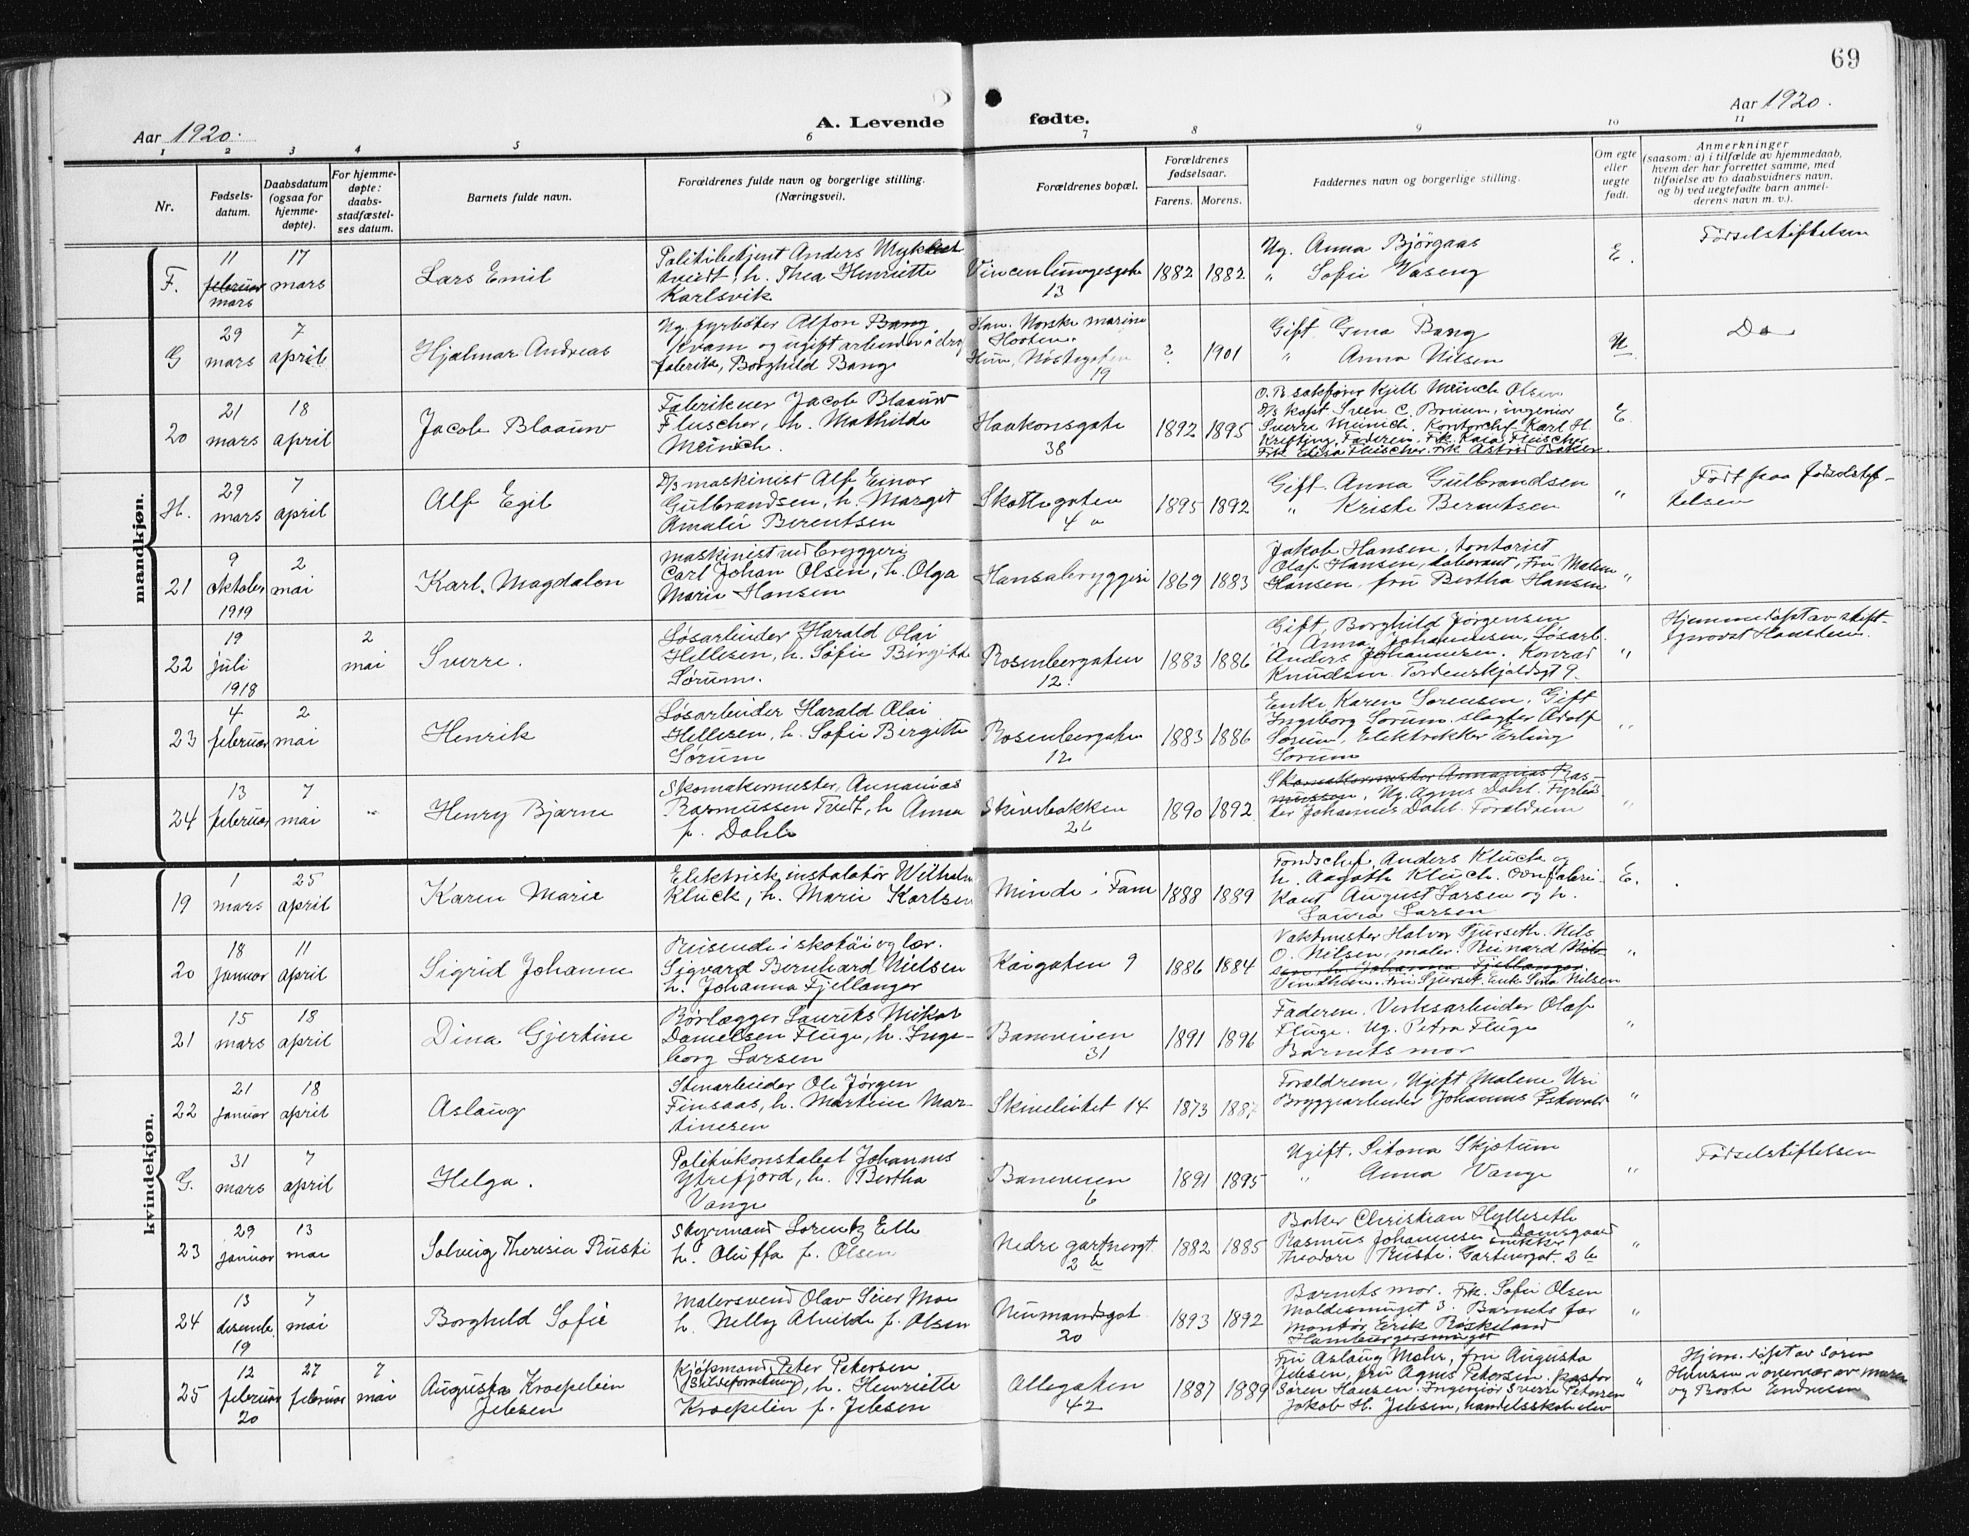 69
Aar 1920.
A. Levende
fødte.
Aar 1920.
1 2 3 4 5 6 7 8 9 10 11
Nr.
Fødsels-
datum.
Daabsdatum
(ogsaa for
hjemme-
døpte).
For hjemme-
døpte:
daabs-
stadfæstel-
ses datum.
Barnets fulde navn.
Forældrenes fulde navn og borgerlige stilling.
(Næringsvei).
Forældrenes bopæl.
Forældrenes
fødselsaar.
Farens. Morens.
Faddernes navn og borgerlige stilling.
Om egte
eller
uegte
født.
Anmerkninger
(saasom: a) i tilfælde av hjemmedaab,
hvem der har forrettet samme, med
tilføielse av to daabsvidners navn,
og b) ved uegtefødte barn anmel-
derens navn m. v.).
mandkjøn.
F.
11
februar
mars
17
mars
Lars Emil
Politibetjent Anders
h. Thea Henriette
Karlsvik
Vincenlungesgate
13
1882 1882
Ug. Anna Bjørgaas
" Sofie Vaseng
E.
Fødselstiftelsen
G
29
mars
7
april
Hjalmar Andreas
Ug. fyrbøter Alfon Bang
Kvam og ugift arbeider i
fabrik, Borghild Bang
Han. Norske marine
Horten.
Hun, Nøstegaten
19
? 1901
Gift Gina Bang
" Anna Nilsen
U
Do
20
21
mars
18
april
Jacob Blaauw
Fabrikeier Jacob Blaauw
Fleischer, h. Mathilde
Meinich.
Haakonsgate
38
1892 1895
O. R. sakfører Kjell Meinich Olsen
D/S kapt. Sven C. Bruun, ingeniør
Sverre Meinich. Kontorchef Karl H.
Krefting, Faderen. Frk. Kaia Fleischer
Frk. Elisa Fleischer. Frk. Astrid
E.
H.
29
mars
7
april
Alf Egil
D/S maskinist Alf Einar
Gulbrandsen, h. Margit
Amalie Berentsen
Skottegaten
4 a
1895 1892
Gift. Anna Gulbrandsen
" Kriste Berentsen
"
Født paa fødselstif-
telsen
21
9
oktober
1919
2
mai
Karl. Magdalon
Maskinist ved bryggeri
Carl Johan Olsen, h. Olga
Marie Hansen
Hansabryggeri
1869 1883
Jakob Hansen, kontorist
Olaf Hansen, laborant, Fru Malene
Hansen, fru Bertha Hansen
"
22
19
juli
1918
2
mai
Sverre.
Løsarbeider Harald Olai
Hillesen, h. Sofie Birgitte
Sørum.
Rosenbergaten
12.
1883 1886
Gift, Borghild Jørgensen
" Anna Johannesen, Løsarb.
Anders Johannesen. Konrad
Knudsen. Tordenskjoldsgt 9.
"
Hjemmedøpt av stift-
sprovst Hansteen.
23
4
februar
2
mai
Henrik
Løsarbeider Harald Olai
Hillesen, h. Sofie Bergitte
Sørum
Rosenbergaten
12
1883 1886
Enke Karen Sørensen, Gift
Ingeborg Sørum. slagter Adolf
Sørum, Elektrikker Erling
Sørum
"
24
13
februar
7
mai
"
Henry Bjarne
Skomakermester, Annanias
Rasmussen Tvedt, h. Anna
f. Dahle
Skivebakken
26
1890 1892
Skomakermester Annanias Ras-
mussen, Ug. Agnes Dahl. Fyrbø-
ter Johannes Dahl. Forældrene
"
kvindekjøn.
19
1
mars
25
april
Karen Marie
Elektrisk instalatør Wilhelm
Kluck, h. Marie Karlsen
Minde i Fana
1888 1889
Anders Kluck og
h. Aagoth Kluck. Ovnfabri-
kant August Larsen og h.
Laura Larsen
E.
20
18
januar
11
april
Sigrid Johanne
Reisende i skotøi og lær.
Sigvard Bernhard Nielsen
h. Johanna Fjellanger
Kaigaten 9
1886 1884
Vaktmester Halvor Sjurseth. Nils
O. Nilsen, maler. Reinard Niel-
sen, h. Johanna Fjellanger
Fru Sjurset. Enke Sina Nilsen
"
21
15
mars
18
april
Dina Gjertine
Rørlægger Lauritz Mikal
Danielsen Fluge, h. Inge-
borg Larsen
Baneveien
31
1891 1896
Faderen. Verksarbeider Olaf
Fluge. Ug. Petra Fluge
Barnets mor
"
22
21
januar
18
april
Aslaug
Stenarbeider Ole Jørgen
Finsaas, h. Martine Mar-
tinesen
Skivebaket 14
1873 1887
Forældrene, Ugift Malene Uri
Bryggearbeider Johannes
"
G.
31
mars
7
april
Helga.
Politikonstabel Johannes
Ytrefjord, h. Bertha
Vange
Baneveien
6
1891 1895
Ugift. Sitona Skjøtum
" Anna Vange
"
Fødselstiftelsen
23
29
januar
13
mai
Solveig Theresia Ruski
Styrmand Lorentz Elle
h. Oluffa f. Olsen
Nedre gartnergt.
2 b
1882 1885
Baker Christian Hylleseth
Rasmus Johannesen Damsgaard
snekker
Theodore Ruski. Gartnergt. 2 b
"
24
13
desembe
19
7
mai
Borghild Sofie
Malersvend Olav Seier Moe
h. Nelly Alvilde f. Olsen
Neumandsgat.
20
1893 1892
Barnets mor. Frk. Sofie Olsen
3. Barnets far
Montør Erik Røskeland
Hamburgersmuget
"
25
12
februar
20
27
februar
7
mai
Augusta Kroepelein
Jebsen
Kjøpmand, Peter Petersen
(Bildeforretning), h. Henriette
Kroepelin f. Jebsen
Allegaten
42
1887 1889
Fru Aslaug Mohr, fru Augusta
Jebsen, fru Agnes Petersen. pastor
Søren Hansen. Ingeniør Sverre Petersen
Jakob H. Jebsen, handelsskole elev
"
Hjem. døpt av Søren
Hansen i overvær av
og Borte Endresen